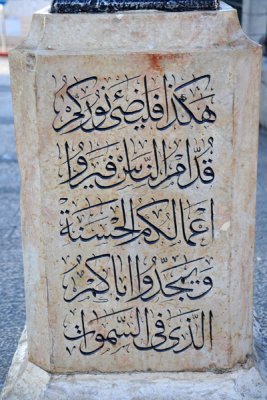 هكذا فليضئ نوركم
قدام الناس فيروا
اعمالكم الحسنة
ويمجدوا اباكم
الذى فى السموات